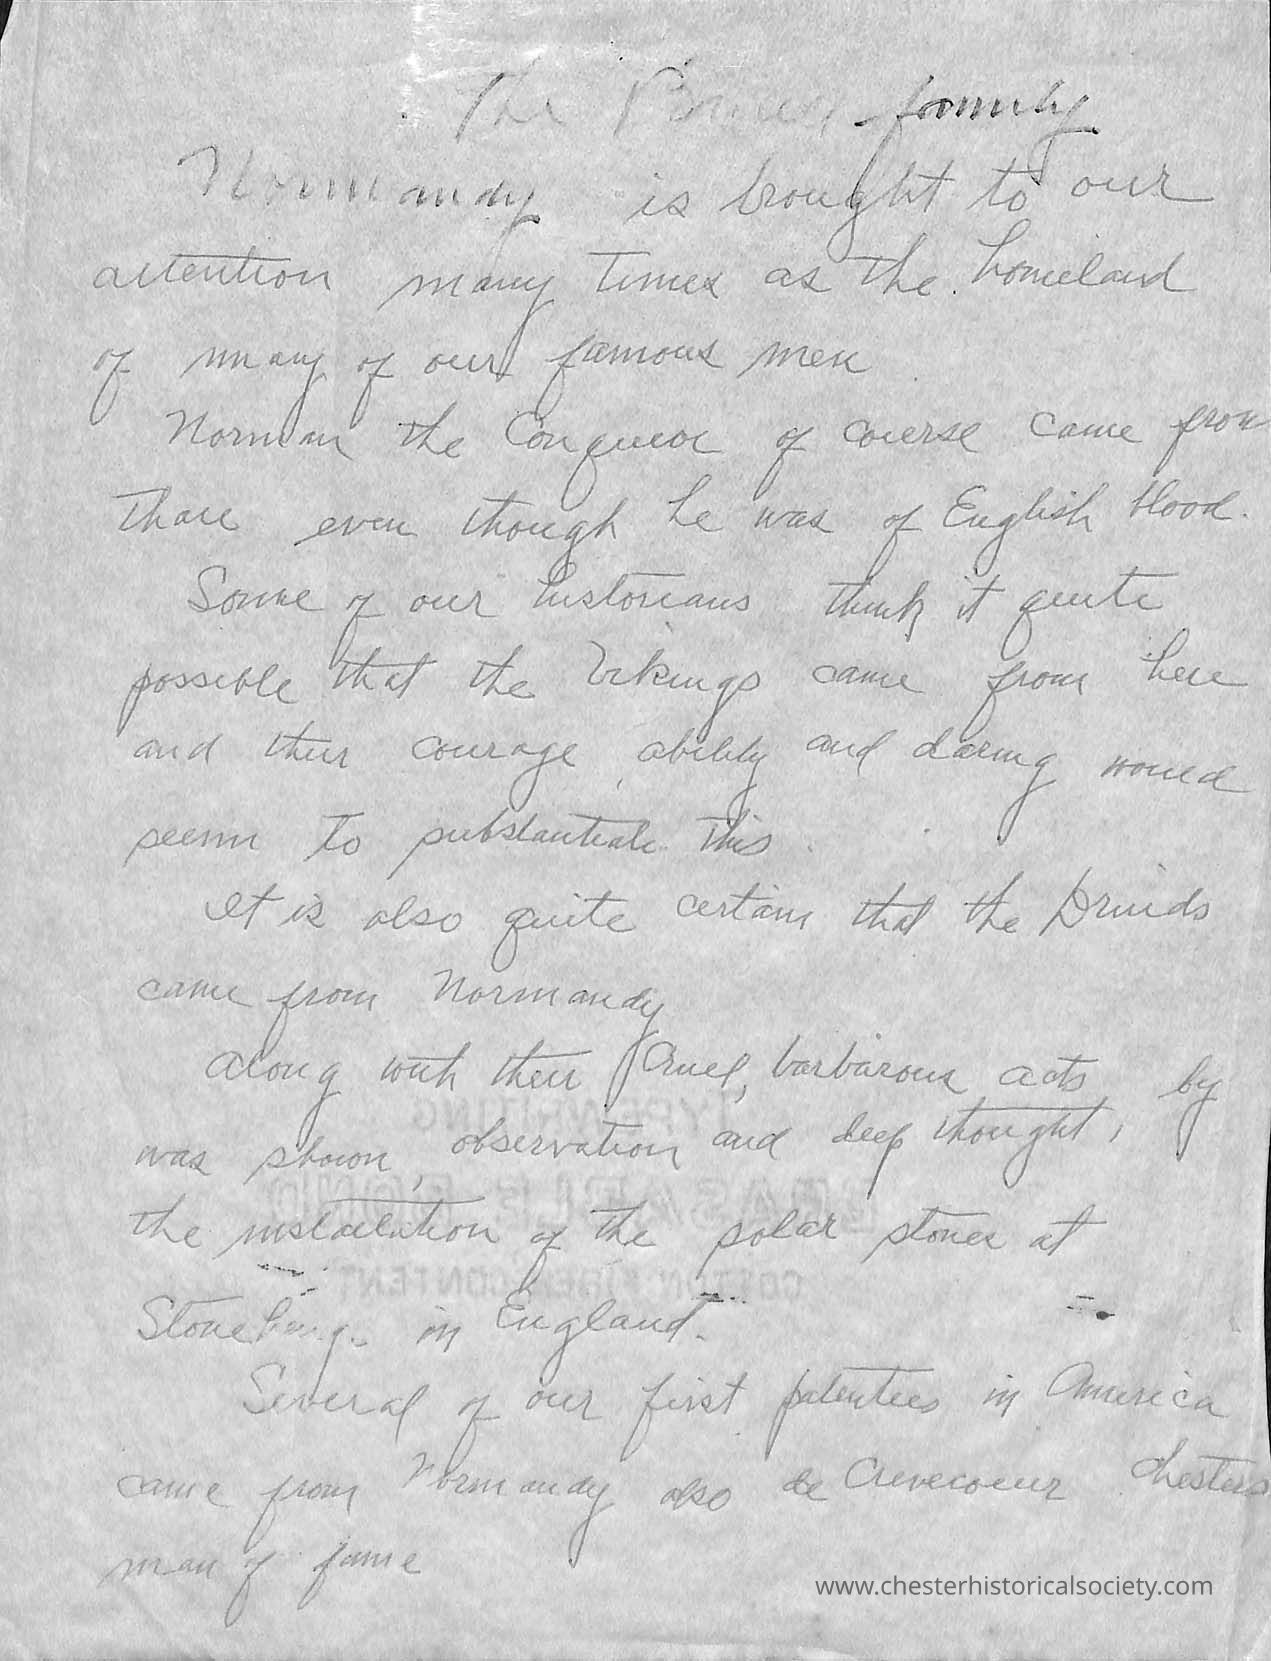 The family
Normandy is brought to our
attention many times as the homeland
of many of our famous men
Norman the Conqueror of course came from
thare even though he was of English blood.
Some of our historians think it quite
possible that the Vikings came from here
and their courage, ability and daring would
seem to substantiate this.
It is also quite certain that the Druids
came from Normandy
Along with their cruel, barbarous acts by
was shown, observation and deep thought,
TYPEWRITING
ERASABLE BOND
the installation of the polar stones at
COTTON FIBER CONTENT
in England.
Several of our first patentees in America
came from Normandy also de Crevecoeur Chesters
man of fame
www.chesterhistoricalsociety.com